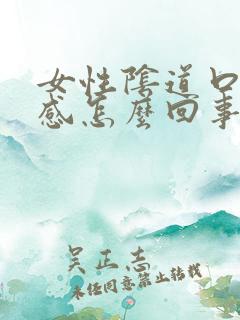 女性陰道口
感怎麼回事
吴正志
未经同意禁止转载